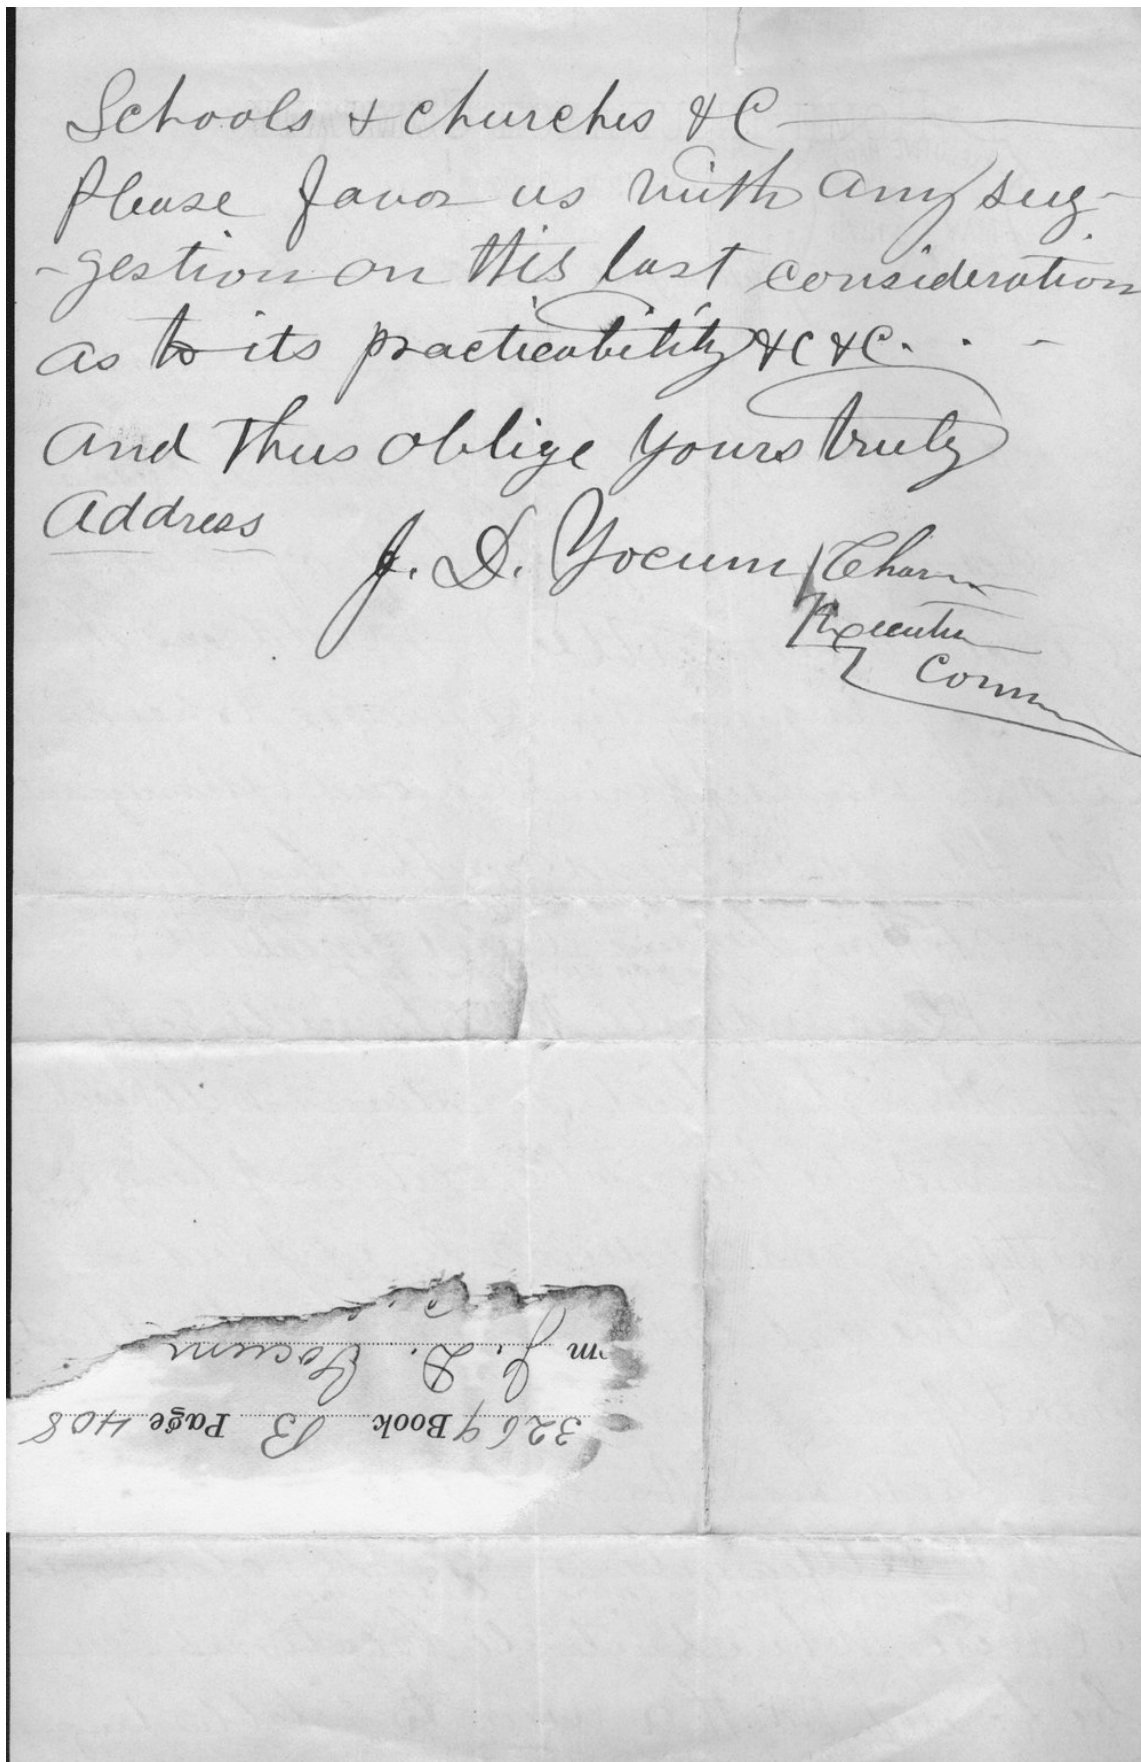 Schools & churches &C
Please favor us with any sug-
-gestion on this last consideration
as to its practicability &C &C. . -
and thus oblige yours truly
Address
J. D. Yocum Charm
Executive
Comm
3269 Book B Page 408
m J. D. Yocum